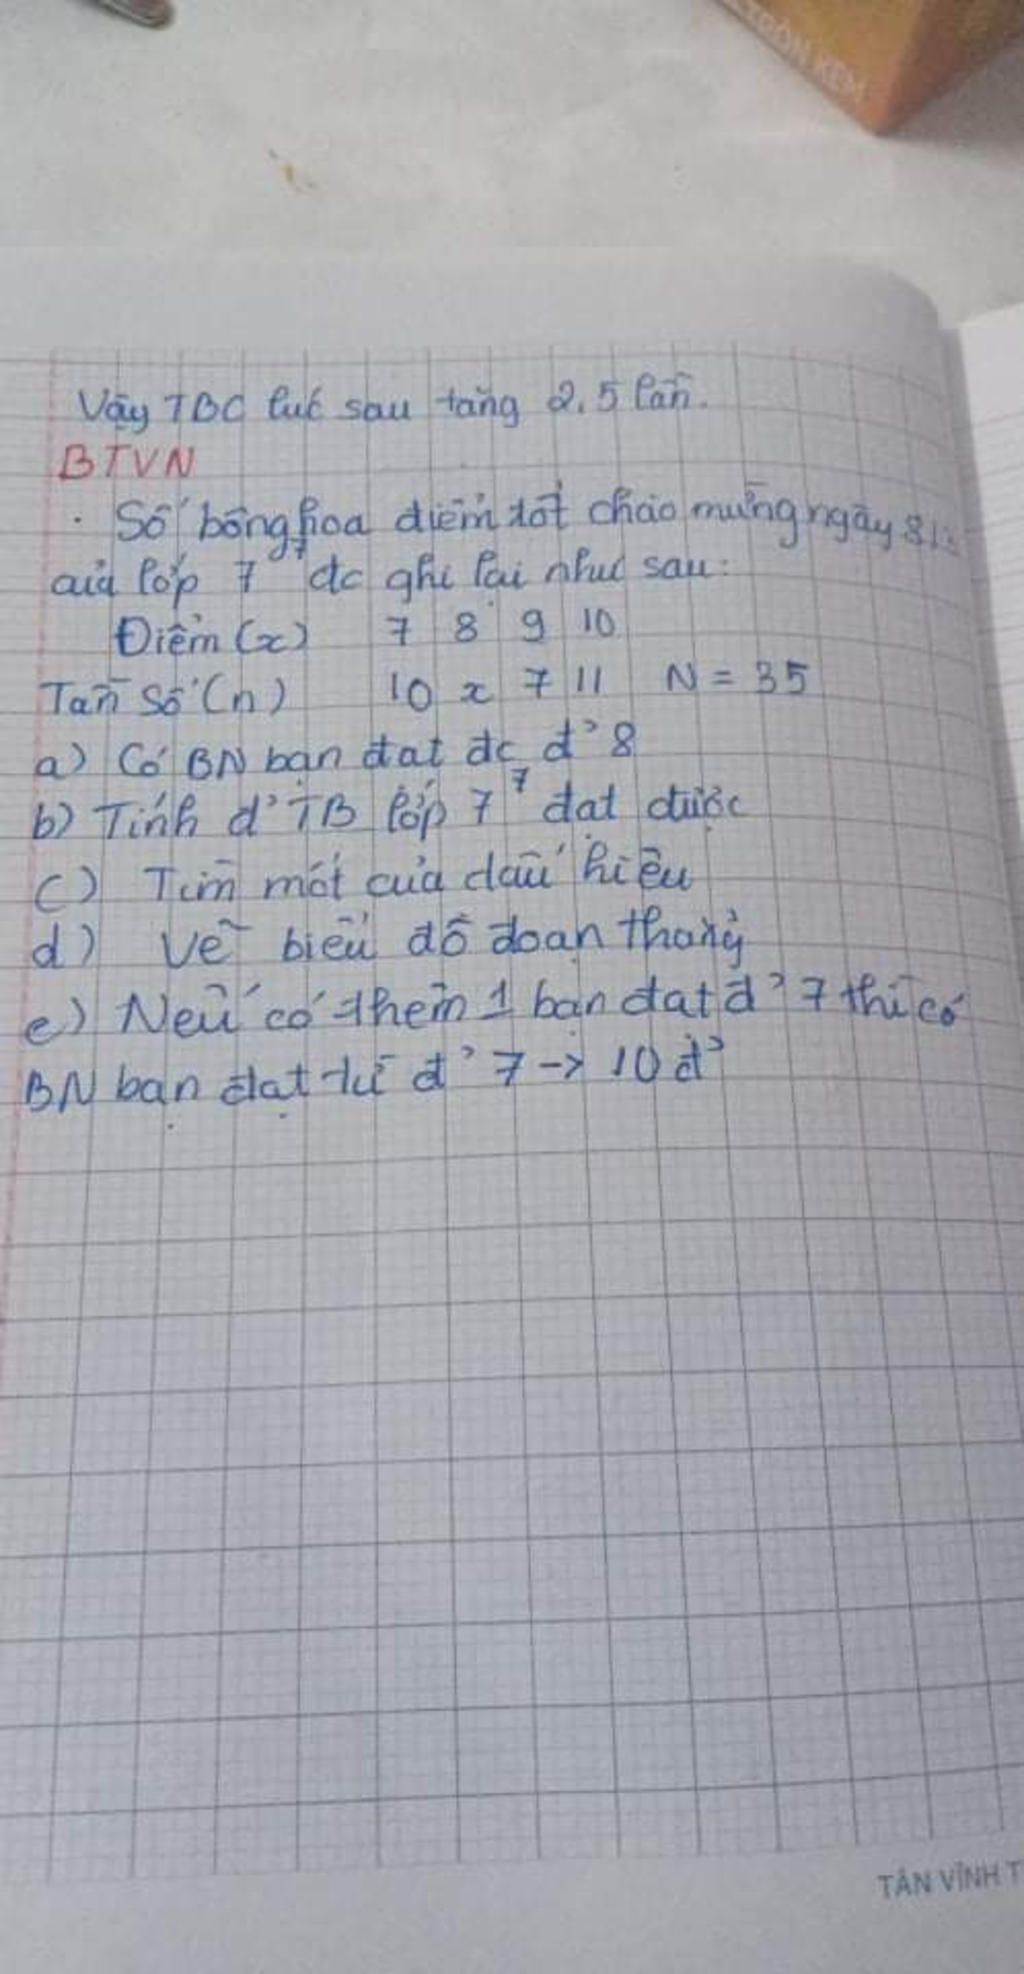 TRỘN KEM
Vậy TBC lúc sau tăng 2,5 lần.
BTVN
. Số bông hoa điểm tốt chào mừng ngày 8/3
của lớp 7⁷ đc ghi lại như sau:
Điểm (x) 7 8 9 10
Tần số (n) 10 x 7 11 N = 35
a) Có BN bạn đạt đc đ' 8
b) Tính đ' TB lớp 7⁷ đạt được
c) Tìm mốt của dấu hiệu
d) Vẽ biểu đồ đoạn thẳng
e) Nếu có thêm 1 bạn đạt đ' 7 thì có
BN bạn đạt từ đ' 7 -> 10 đ'
TÂN VĨNH